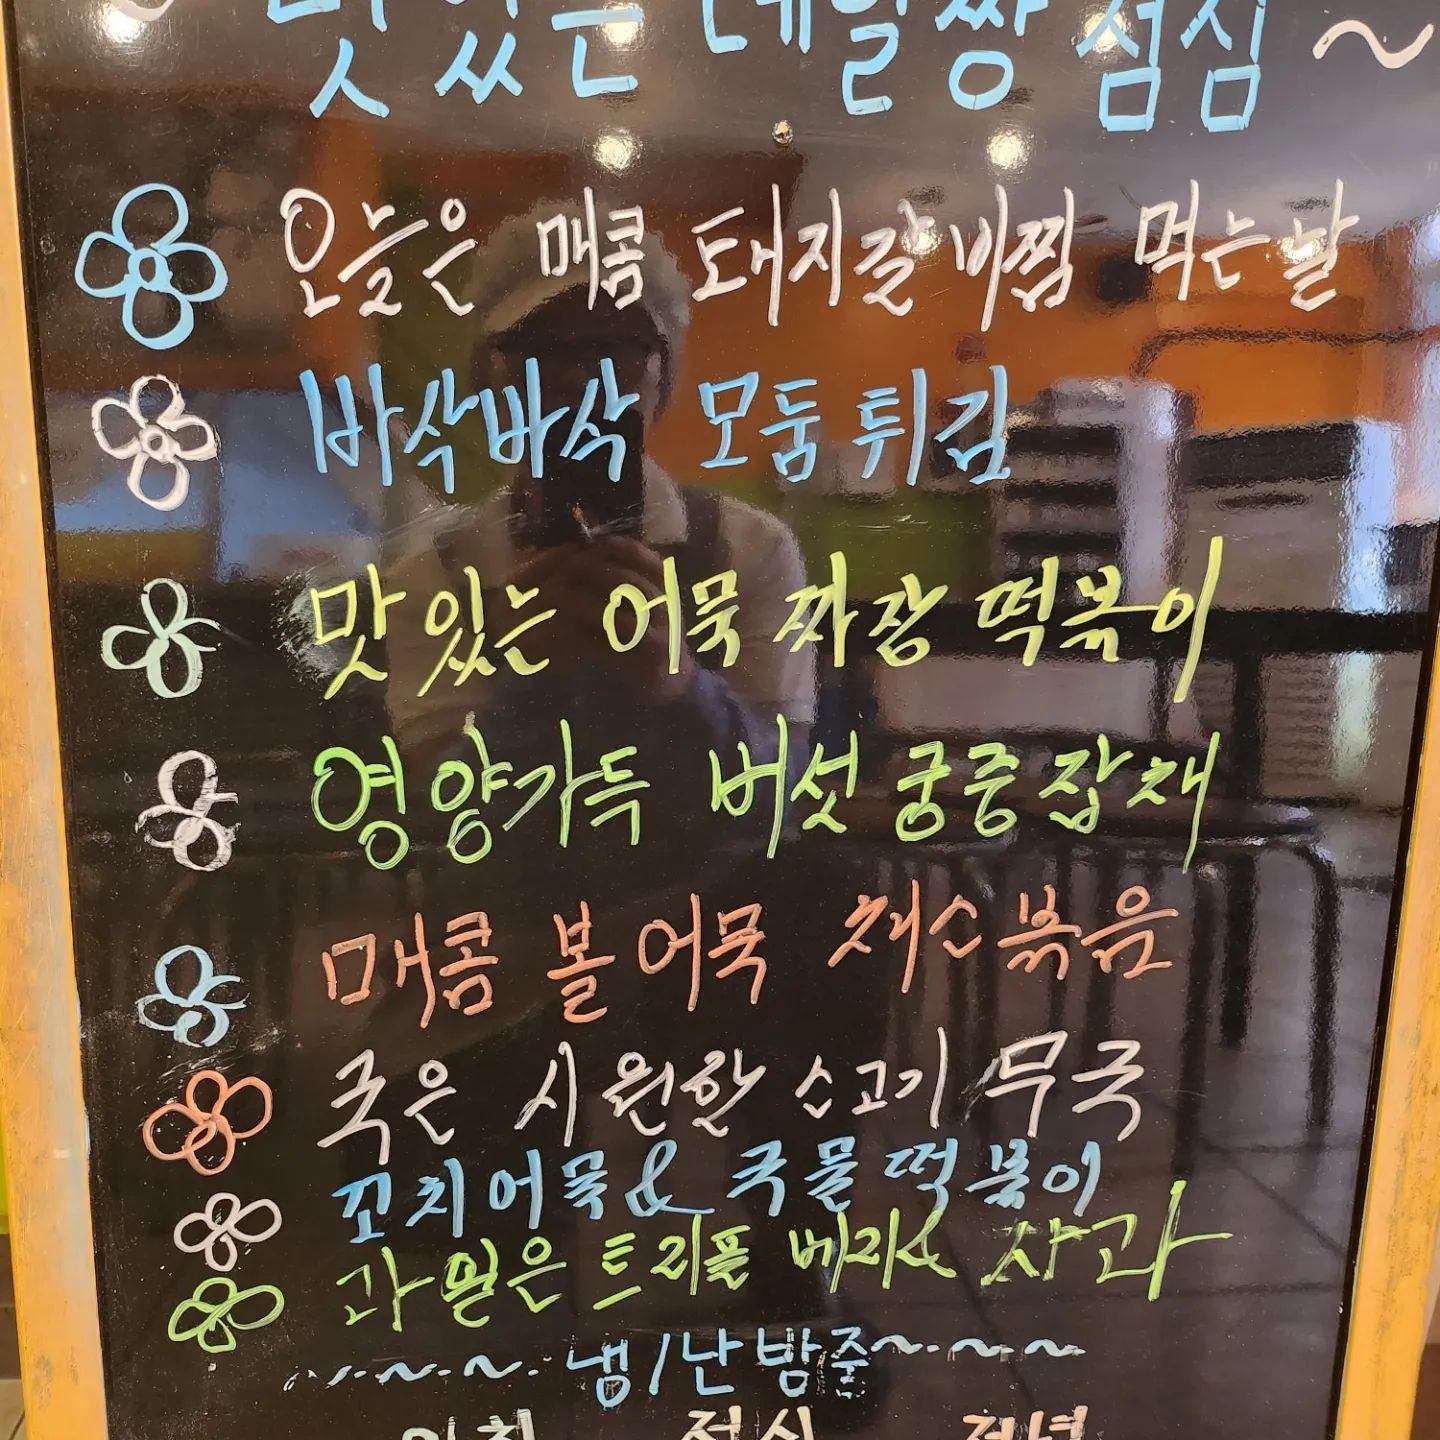 ~ 맛있는 데일짱 점심 ~
오늘은 매콤 돼지갈비찜 먹는날
바삭바삭 모둠튀김
맛있는 어묵 짜장 떡볶이
영양가득 버섯 궁중잡채
매콤 볼어묵 채소볶음
국은 시원한 소고기 무국
꼬치어묵 & 국물떡볶이
과일은 트리플 베리 & 사과
냉/난방중
아침 점심 저녁